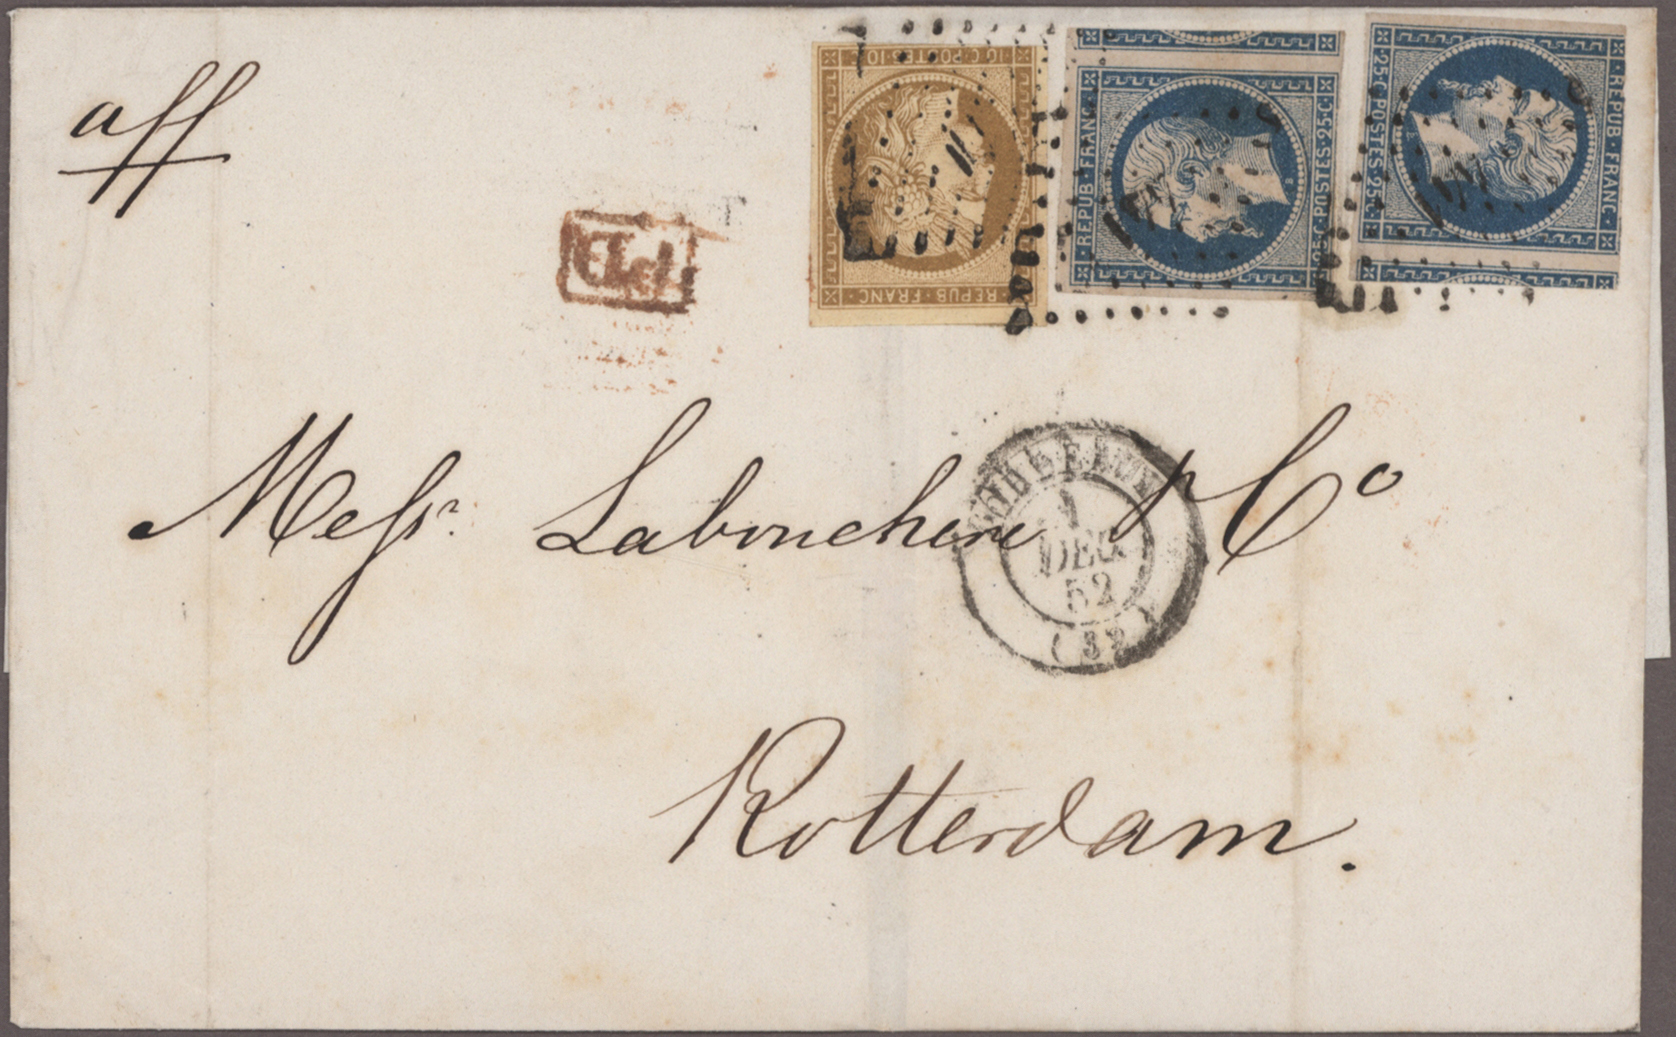 aff
10·C·POSTES·10·C
·REPUB·FRANC·
·REPUB·FRANC·
25·C·POSTES·25·C
25·C·POSTES·25·C
·REPUB·FRANC·
Messrs. Labouchere & Co
1
DEC.
52
(32)
Rotterdam.